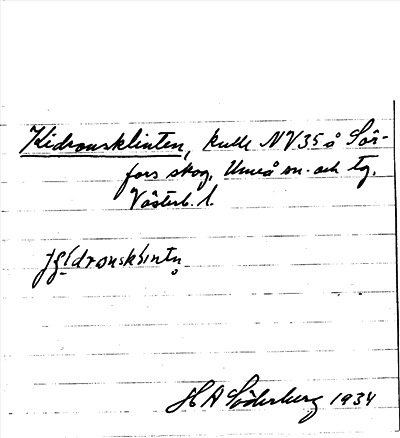 Kidronsklinten, kulle NV35 å Sör-
fors skog, Umeå sn. och tg.
Västerb. l.
H A Söderberg 1934